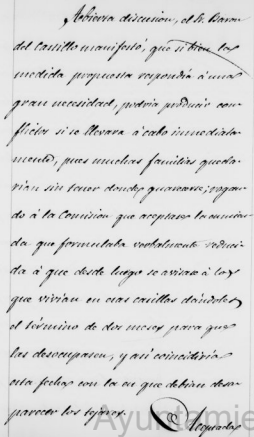 Abierta discusion, el Sr. Baron
del Castillo manifestó, que si bien la
medida propuesta respondia á una
gran necesidad, podria producir con-
flictos si se llevara á cabo inmediata-
mente, pues muchas familias queda-
rian sin tener donde guarecerse; rogan-
do á la Comision que aceptare la enmien-
da que formulaba verbalmente reduci-
da á que desde luego se avisase á los
que vivian en esas casillas dándoles
el término de dos meses para que
las desocupasen, y asi coincidiria
esta fecha con la en que debian desa-
parecer los tejares.
Ayuntamie